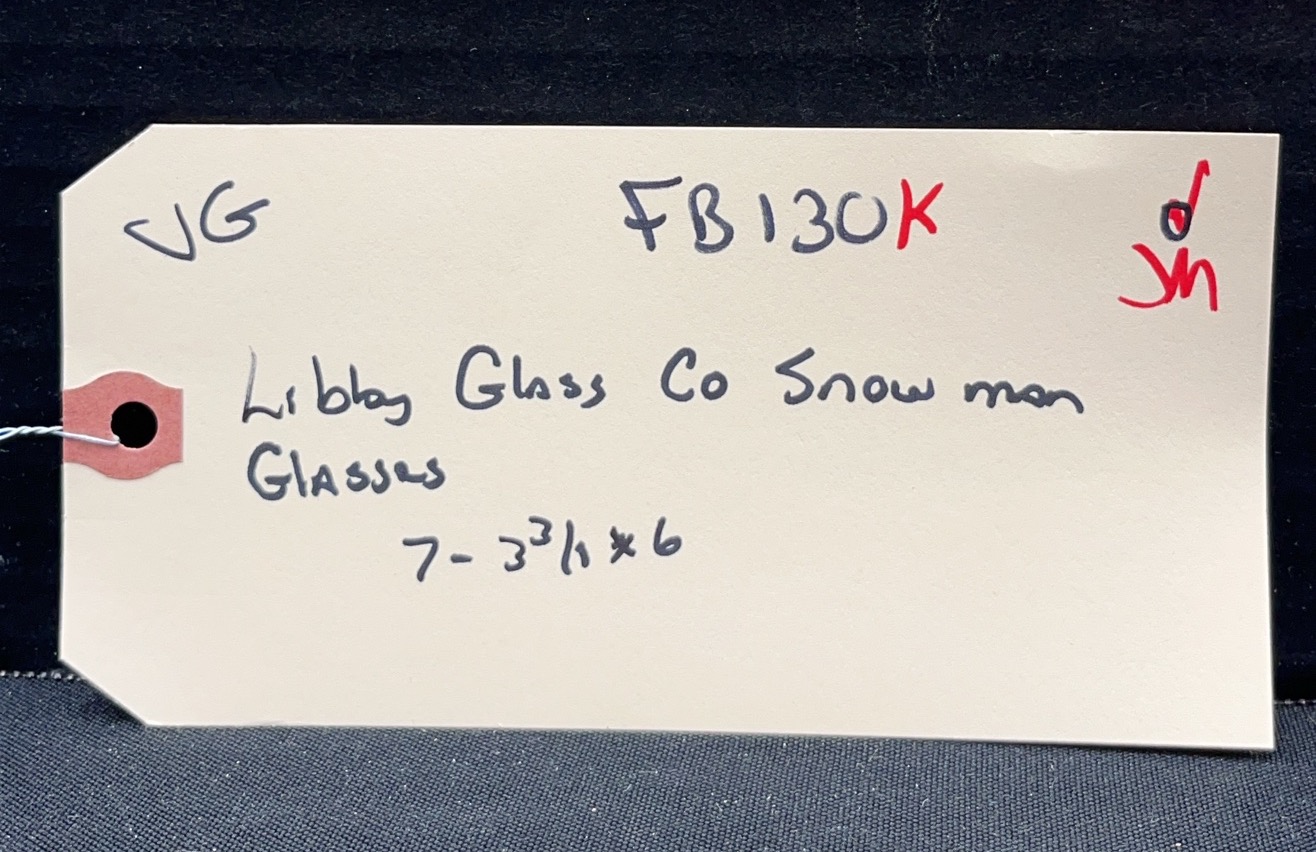 VG FB130K
Libby Glass Co Snowman
Glasses
7 - 3 3/4 x 6